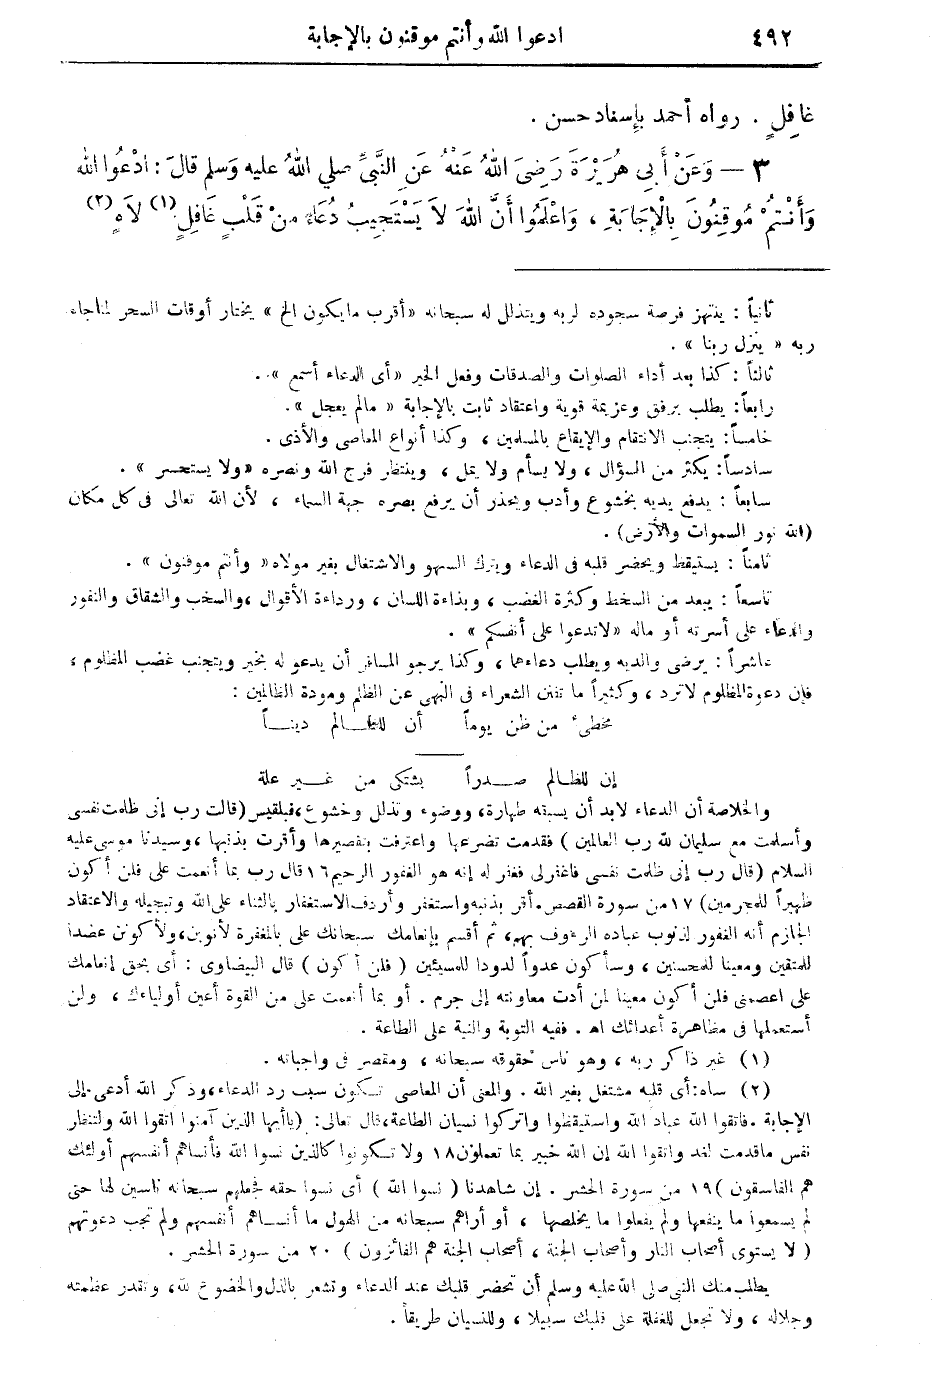 ٤٩٢ ادعوا الله وأنتم موقنون بالإجابة
غافِلٍ . رواه أحمد بإسناد حسن .
٣ — وَعَنْ أَبِي هُرَيْرَةَ رَضِيَ اللهُ عَنْهُ عَنِ النَّبِيِّ صلي اللهُ عليه وَسلم قالَ : ادْعُوا الله
وَأَنْتُمْ مُوقِنُونَ بِالْإِجَابَةِ ، وَاعْلَمُوا أَنَّ اللهَ لاَ يَسْتَجِيبُ دُعَاءً مِنْ قَلْبٍ غَافِلٍ (١) لاَهٍ (٢)
ثانياً : ينتهز فرصة سجوده لربه ويتذلل له سبحانه «أقرب ما يكون الخ » يختار أوقات السحر لمناجاة
ربه « ينزل ربنا » .
ثالثاً : كذا بعد أداء الصلوات والصدقات وفعل الخير «أى الدعاء أسمع » .
رابعاً: يطلب برفق وعزيمة قوية واعتقاد ثابت بالإجابة « مالم يعجل ».
خامساً: يتجنب الانتقام والإيقاع بالمسلمين ، وكذا أنواع المعاصى والأذى .
سادساً: يكثر من السؤال ، ولا يسأم ولا يمل ، وينتظر فرج الله ونصره «ولا يستحسر » .
سابعاً : يدفع يديه بخشوع وأدب ويحذر أن يرفع بصره جهة السماء ، لأن الله تعالى فى كل مكان
(الله نور السموات والأرض) .
ثامناً : يستيقظ ويحضر قلبه فى الدعاء ويترك السهو والاشتغال بغير مولاه« وأنتم موقنون » .
تاسعاً : يبعد من السخط وكثرة الغضب ، وبذاءة اللسان ، ورداءة الأقوال ،والسخب والشقاق والنفور
والدعاء على أسرته أو ماله «لاتدعوا على أنفسكم » .
عاشراً : يرضى والديه ويطلب دعاءهما ، وكذا يرجو المسافر أن يدعو له بخير ويتجنب غضب المظلوم ،
فإن دعوة المظلوم لاترد ، وكثيراً ما تفنن الشعراء فى النهى عن الظلم ومودة الظالمين :
مخطىء من ظن يوماً أن للظـالم دينـاً
إن للظالم صـدراً يشتكى من غـير علة
والخلاصة أن الدعاء لابد أن يسبقه طهارة، ووضوء وتذلل وخشوع،فبلقيس (قالت رب إنى ظلمت نفسى
وأسلمت مع سليمان لله رب العالمين ) فقدمت تضرعها واعترفت بتقصيرها وأقرت بذنبها ،وسيدنا موسى عليه
السلام (قال رب إنى ظلمت نفسى فاغفرلى فغفر له إنه هو الغفور الرحيم ١٦ قال رب بما أنعمت على فلن أكون
ظهيراً للمجرمين) ١٧ من سورة القصص. أقر بذنبه واستغفر وأردف الاستغفار بالثناء على الله وتبجيله والاعتقاد
الجازم أنه الغفور لذنوب عباده الرءوف بهم، ثم أقسم بإنعامك سبحانك على بالمغفرة لأتوبن،ولأكونن عضدا
للمتقين ومعينا للمحسنين ، وسأكون عدواً لدودا للمسيئين ( فلن أكون ) قال البيضاوى : أى بحق إنعامك
على اعصمنى فلن أكون معينا لمن أدت معاونته إلى جرم . أو بما أنعمت على من القوة أعين أولياءك ، ولن
أستعملها فى مظاهرة أعدائك اهـ . ففيه التوبة والنية على الطاعة .
(١) غير ذاكر ربه ، وهو ناس حقوقه سبحانه ، ومقصر فى واجباته .
(٢) ساه:أى قلبه مشتغل بغير الله . والمعنى أن المعاصى تـكون سبب رد الدعاء،وذكر الله أدعى إلى
الإجابة .فاتقوا الله عباد الله واستيقظوا واتركوا نسيان الطاعة،قال تعالى: (ياأيها الذين آمنوا اتقوا الله ولتنظر
نفس ماقدمت لغد واتقوا الله إن الله خبير بما تعملون ١٨ ولا تـكونوا كالذين نسوا الله فأنساهم أنفسهم أولئك
هم الفاسقون ) ١٩ من سورة الحشر . إن شاهدنا ( نسوا الله ) أى نسوا حقه فجعلهم سبحانه ناسين لها حتى
لم يسمعوا ما ينفعها ولم يفعلوا ما يخلصها ، أو أراهم سبحانه من الهول ما أنساهم أنفسهم ولم تجب دعوتهم
( لا يستوى أصحاب النار وأصحاب الجنة ، أصحاب الجنة هم الفائزون ) ٢٠ من سورة الحشر .
يطلب منك النبى صلى الله عليه وسلم أن تحضر قلبك عند الدعاء وتشعر بالذل والخضوع لله، وتقدر عظمته
وجلاله ، ولا تجعل للغفلة على قلبك سبيلا ، وللنسيان طريقاً .